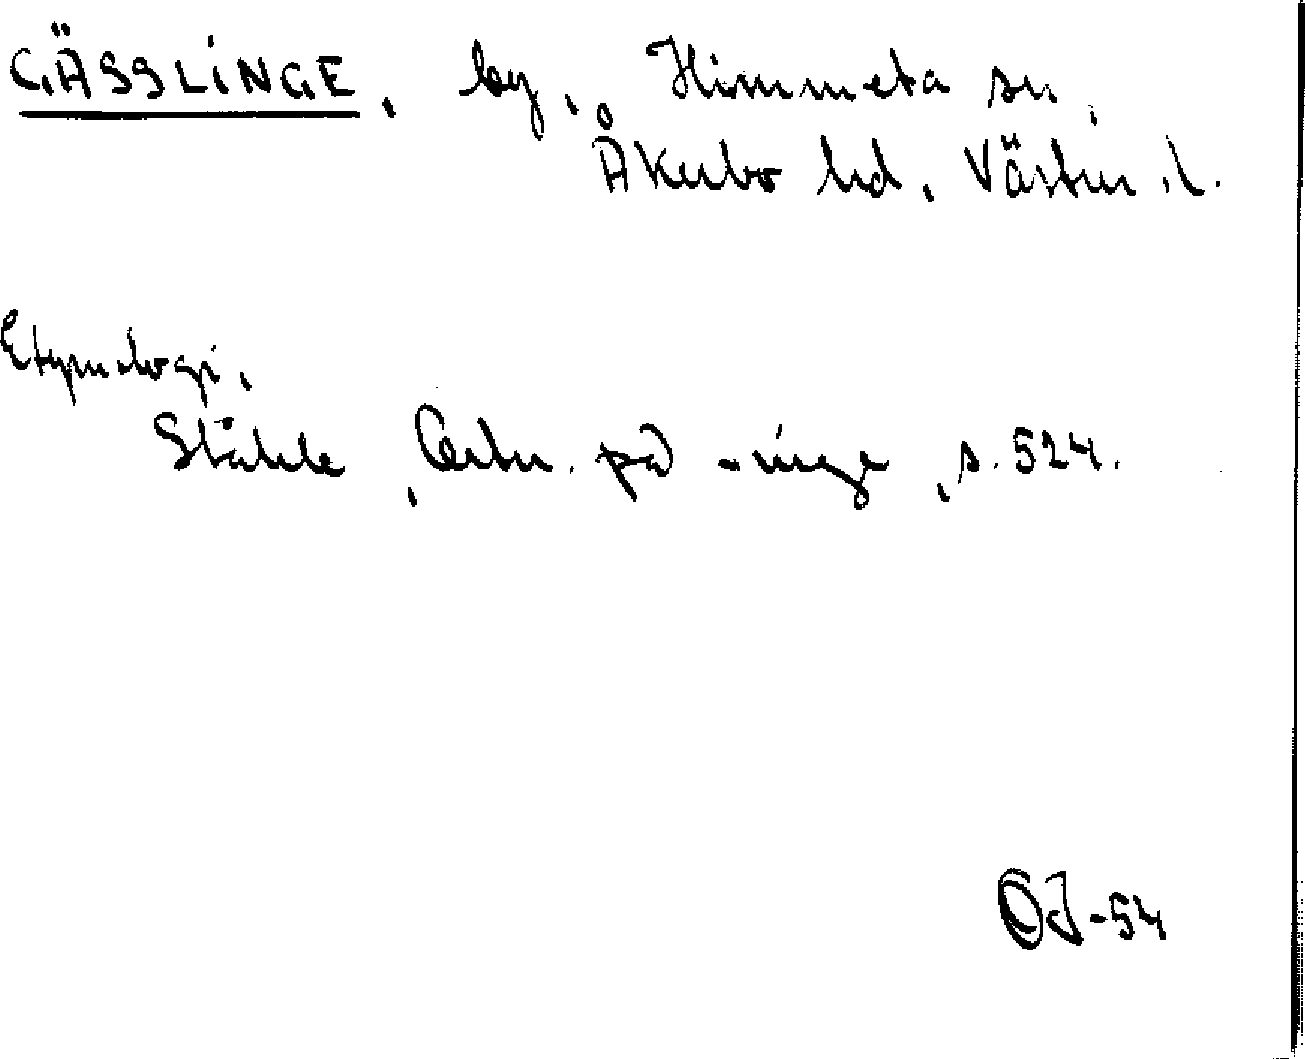 GÄSSLINGE, by, Himmeta sn,
Åkerbo hd, Västm. l.
Etymologi.
Ståhle, Ortn. på -inge, s. 524.
OJ-54